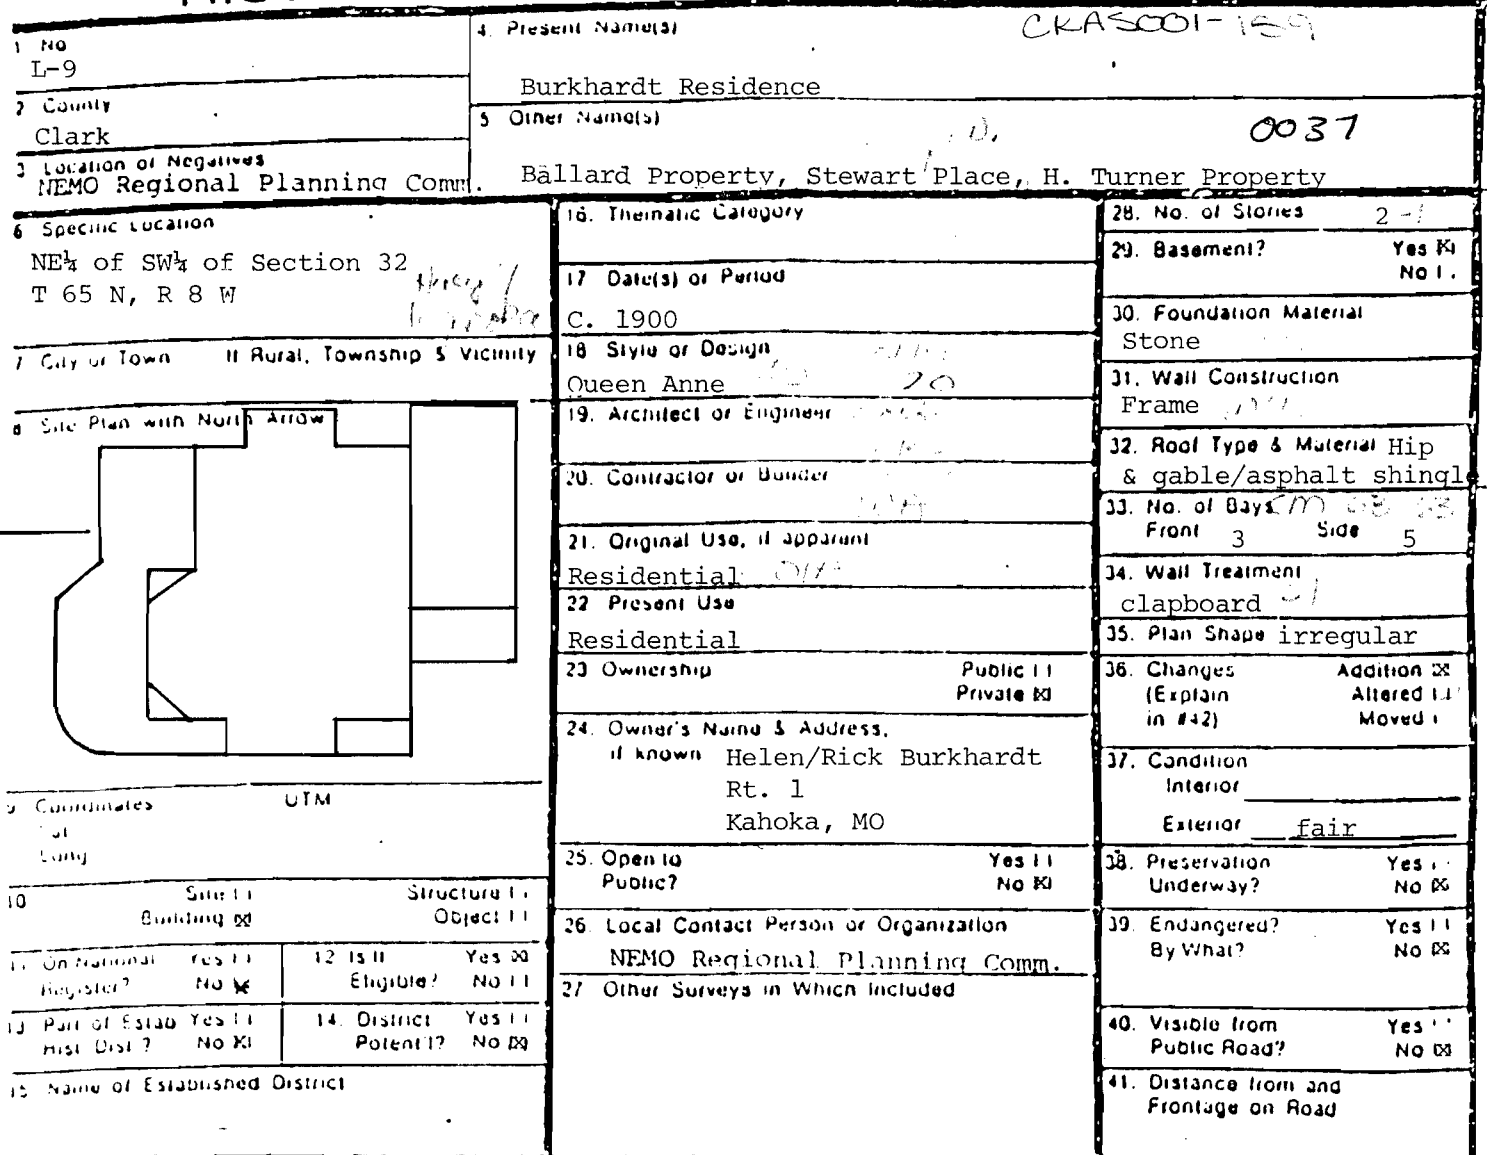 CKAS001-159
1 No
L-9
4. Present Name(s)
Burkhardt Residence
2 County
Clark
5 Other Name(s)
0037
3 Location of Negatives
NEMO Regional Planning Comm.
Ballard Property, Stewart Place, H. Turner Property
6 Specific Location
NE¼ of SW¼ of Section 32
T 65 N, R 8 W
7 City or Town If Rural, Township & Vicinity
8 Site Plan with North Arrow
9 Coordinates UTM
Lat
Long
10 Site [ ] Structure [ ]
Building [X] Object [ ]
11 On National Yes [ ]
Register? No [X]
12 Is It Yes [X]
Eligible? No [ ]
13 Part of Estab Yes [ ]
Hist Dist? No [X]
14. District Yes [ ]
Potent'l? No [X]
15 Name of Established District
16. Thematic Category
17 Date(s) or Period
C. 1900
18 Style or Design
Queen Anne 20
19. Architect or Engineer
20. Contractor or Builder
21. Original Use, if apparent
Residential
22 Present Use
Residential
23 Ownership Public [ ]
Private [X]
24. Owner's Name & Address,
if known Helen/Rick Burkhardt
Rt. 1
Kahoka, MO
25. Open to Yes [ ]
Public? No [X]
26. Local Contact Person or Organization
NEMO Regional Planning Comm.
27 Other Surveys in Which Included
28. No. of Stories 2
29. Basement? Yes [X]
No [ ]
30. Foundation Material
Stone
31. Wall Construction
Frame
32. Roof Type & Material Hip
& gable/asphalt shingle
33. No. of Bays
Front 3 Side 5
34. Wall Treatment
clapboard
35. Plan Shape irregular
36. Changes Addition [X]
(Explain Altered [ ]
in #42) Moved [ ]
37. Condition
Interior
Exterior fair
38. Preservation Yes [ ]
Underway? No [X]
39. Endangered? Yes [ ]
By What? No [X]
40. Visible from Yes [ ]
Public Road? No [X]
41. Distance from and
Frontage on Road